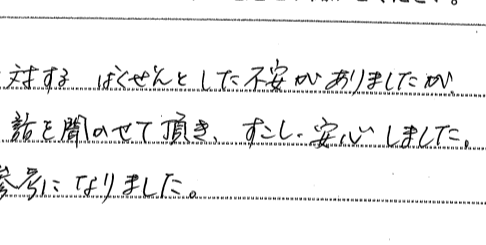 対する ばくぜんとした不安がありましたが、
話を聞かせて頂き、すこし安心しました。
参考になりました。